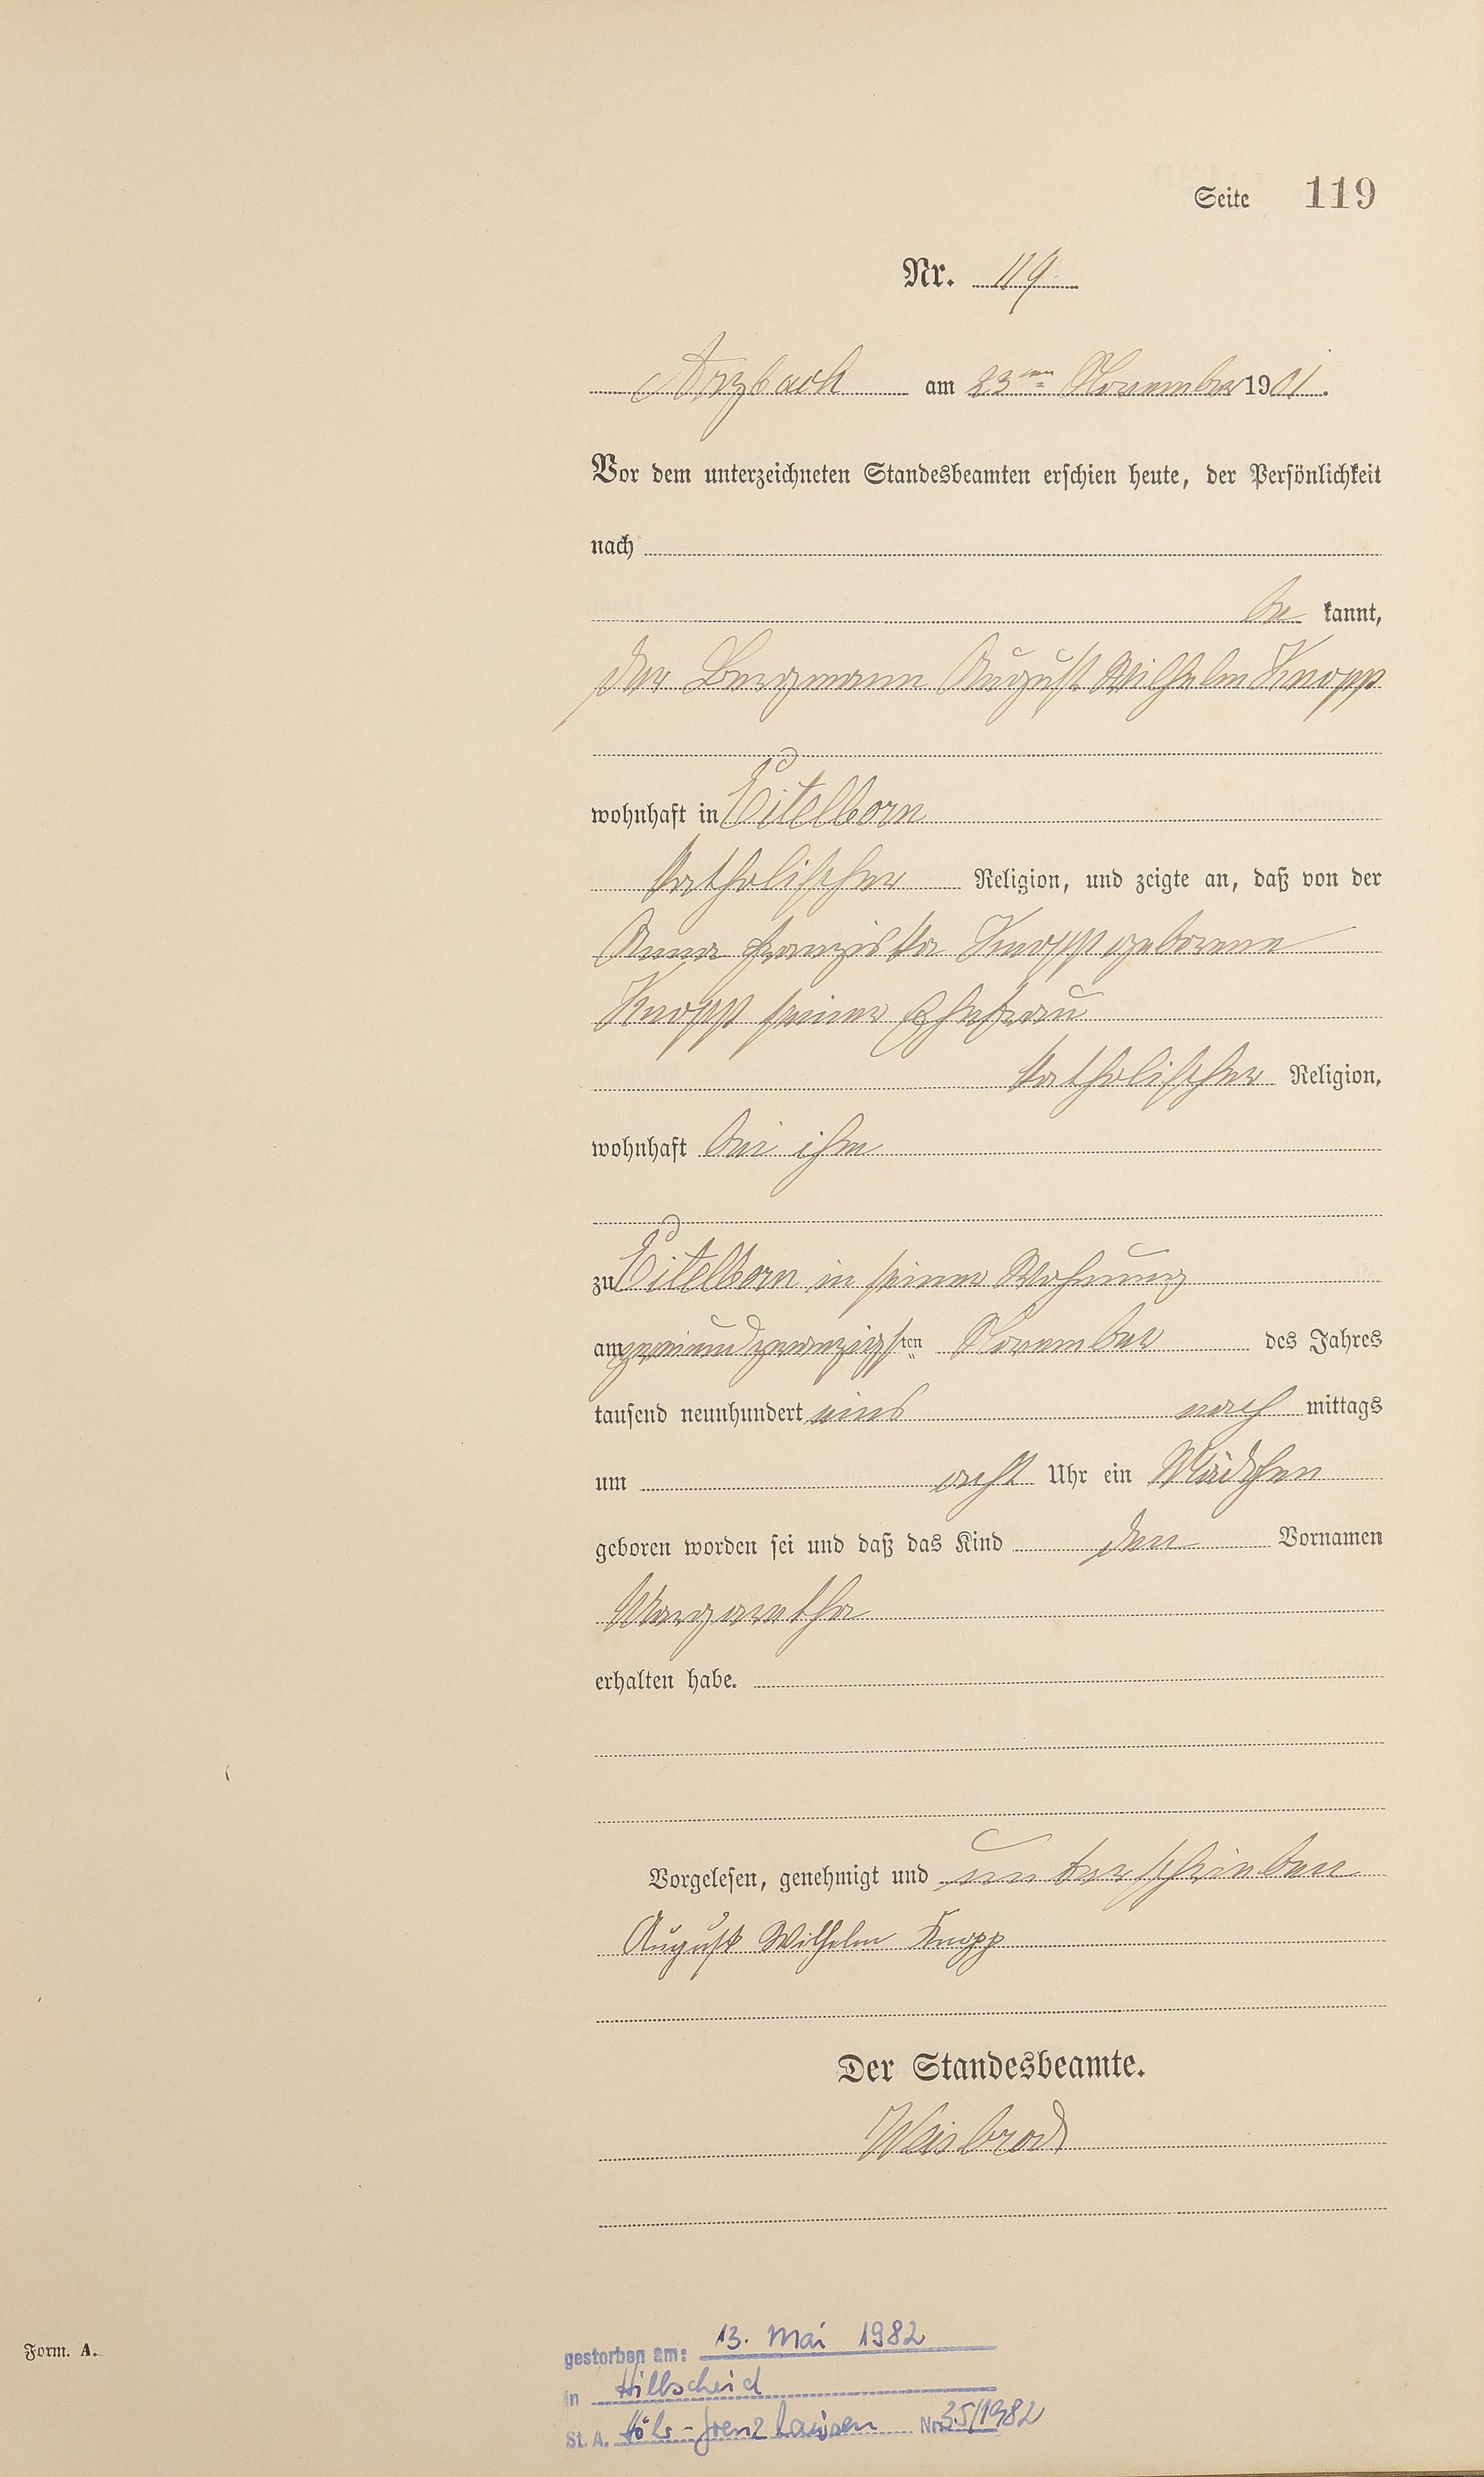 Seite 119
Nr. 119
Arzbach am 23ten November 1901.
Vor dem unterzeichneten Standesbeamten erschien heute, der Persönlichkeit
nach
be kannt,
der Bergmann August Wilhelm Knopp
wohnhaft in Eitelborn
katholischer Religion, und zeigte an, daß von der
Anna Franziska Knopp geborene
Knopp seiner Ehefrau
katholischer Religion,
wohnhaft bei ihm
zu Eitelborn in seiner Wohnung
am zweiundzwanzigsten November des Jahres
tausend neunhundert eins nach mittags
um acht Uhr ein Mädchen
geboren worden sei und daß das Kind den Vornamen
Margaretha
erhalten habe.
Vorgelesen, genehmigt und unterschrieben
August Wilhelm Knopp
Der Standesbeamte.
Weisbrod
Form. A.
gestorben am: 13. Mai 1982
in Hillscheid
St. A. Höhr-Grenzhausen Nr. 35/1982